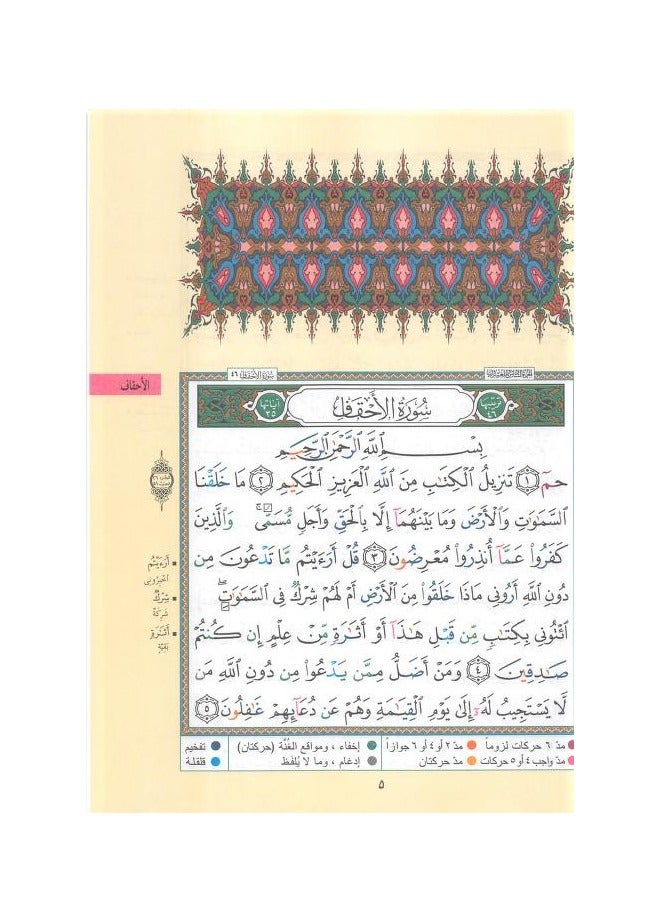 الجزء السادس والعشرون
سورة الأحقاف ٤٦
الأحقاف
ترتيبها ٤٦
سُورَةُ الأَحْقَافِ
آياتها
بِسْمِ ٱللَّهِ ٱلرَّحْمَٰنِ ٱلرَّحِيمِ
حمٓ ۝١ تَنزِيلُ ٱلْكِتَٰبِ مِنَ ٱللَّهِ ٱلْعَزِيزِ ٱلْحَكِيمِ ۝٢ مَا خَلَقْنَا
ٱلسَّمَٰوَٰتِ وَٱلْأَرْضَ وَمَا بَيْنَهُمَآ إِلَّا بِٱلْحَقِّ وَأَجَلٍ مُّسَمًّى ۚ وَٱلَّذِينَ
كَفَرُوا۟ عَمَّآ أُنذِرُوا۟ مُعْرِضُونَ ۝٣ قُلْ أَرَءَيْتُم مَّا تَدْعُونَ مِن
دُونِ ٱللَّهِ أَرُونِى مَاذَا خَلَقُوا۟ مِنَ ٱلْأَرْضِ أَمْ لَهُمْ شِرْكٌ فِى ٱلسَّمَٰوَٰتِ ۖ
ٱئْتُونِى بِكِتَٰبٍ مِّن قَبْلِ هَٰذَآ أَوْ أَثَٰرَةٍ مِّنْ عِلْمٍ إِن كُنتُمْ
صَٰدِقِينَ ۝٤ وَمَنْ أَضَلُّ مِمَّن يَدْعُوا۟ مِن دُونِ ٱللَّهِ مَن
لَّا يَسْتَجِيبُ لَهُۥٓ إِلَىٰ يَوْمِ ٱلْقِيَٰمَةِ وَهُمْ عَن دُعَآئِهِمْ غَٰفِلُونَ ۝٥
أَرَءَيْتُم
أخبروني
شِرْكٌ
شركة
أَثَٰرَةٍ
بقيّة
مدّ ٦ حركات لزوماً ● مدّ ٢ أو ٤ أو ٦ جوازاً ● إخفاء ، ومواقع الغُنَّة (حركتان) ● تفخيم
مدّ واجب ٤ أو ٥ حركات ● مدّ حركتان ● إدغام ، وما لا يُلفَظ ● قلقلة
٥